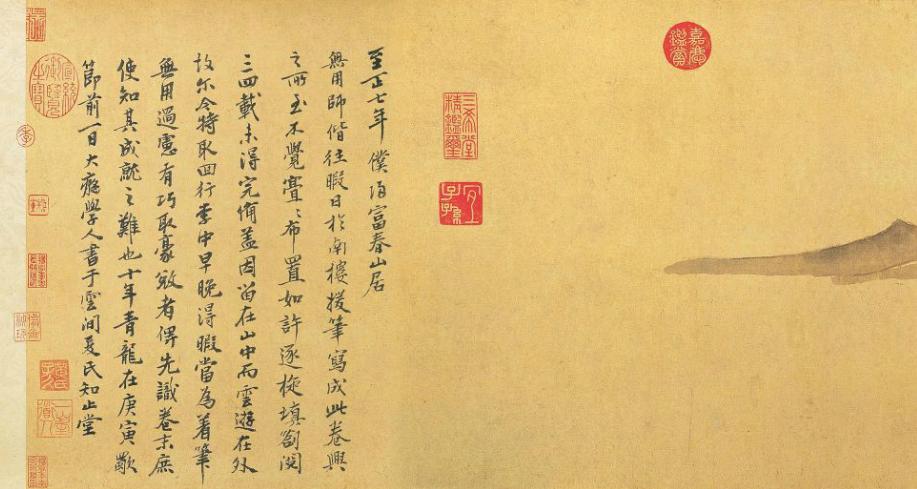 嘉慶鑑賞
三希堂精鑑璽
宜子孫
至正七年僕歸富春山居
無用師偕往暇日於南樓援筆寫成此卷興
之所至不覺亹〻布置如許逐旋填劄閱
三四載未得完備盖因留在山中而雲遊在外
故尔今特取回行李中早晚得暇當為着筆
無用過慮有巧取豪敚者俾先識卷末庶
使知其成就之難也十年青龍在庚寅歜
節前一日大癡學人書于雲間夏氏知止堂
宣統御覽之寶